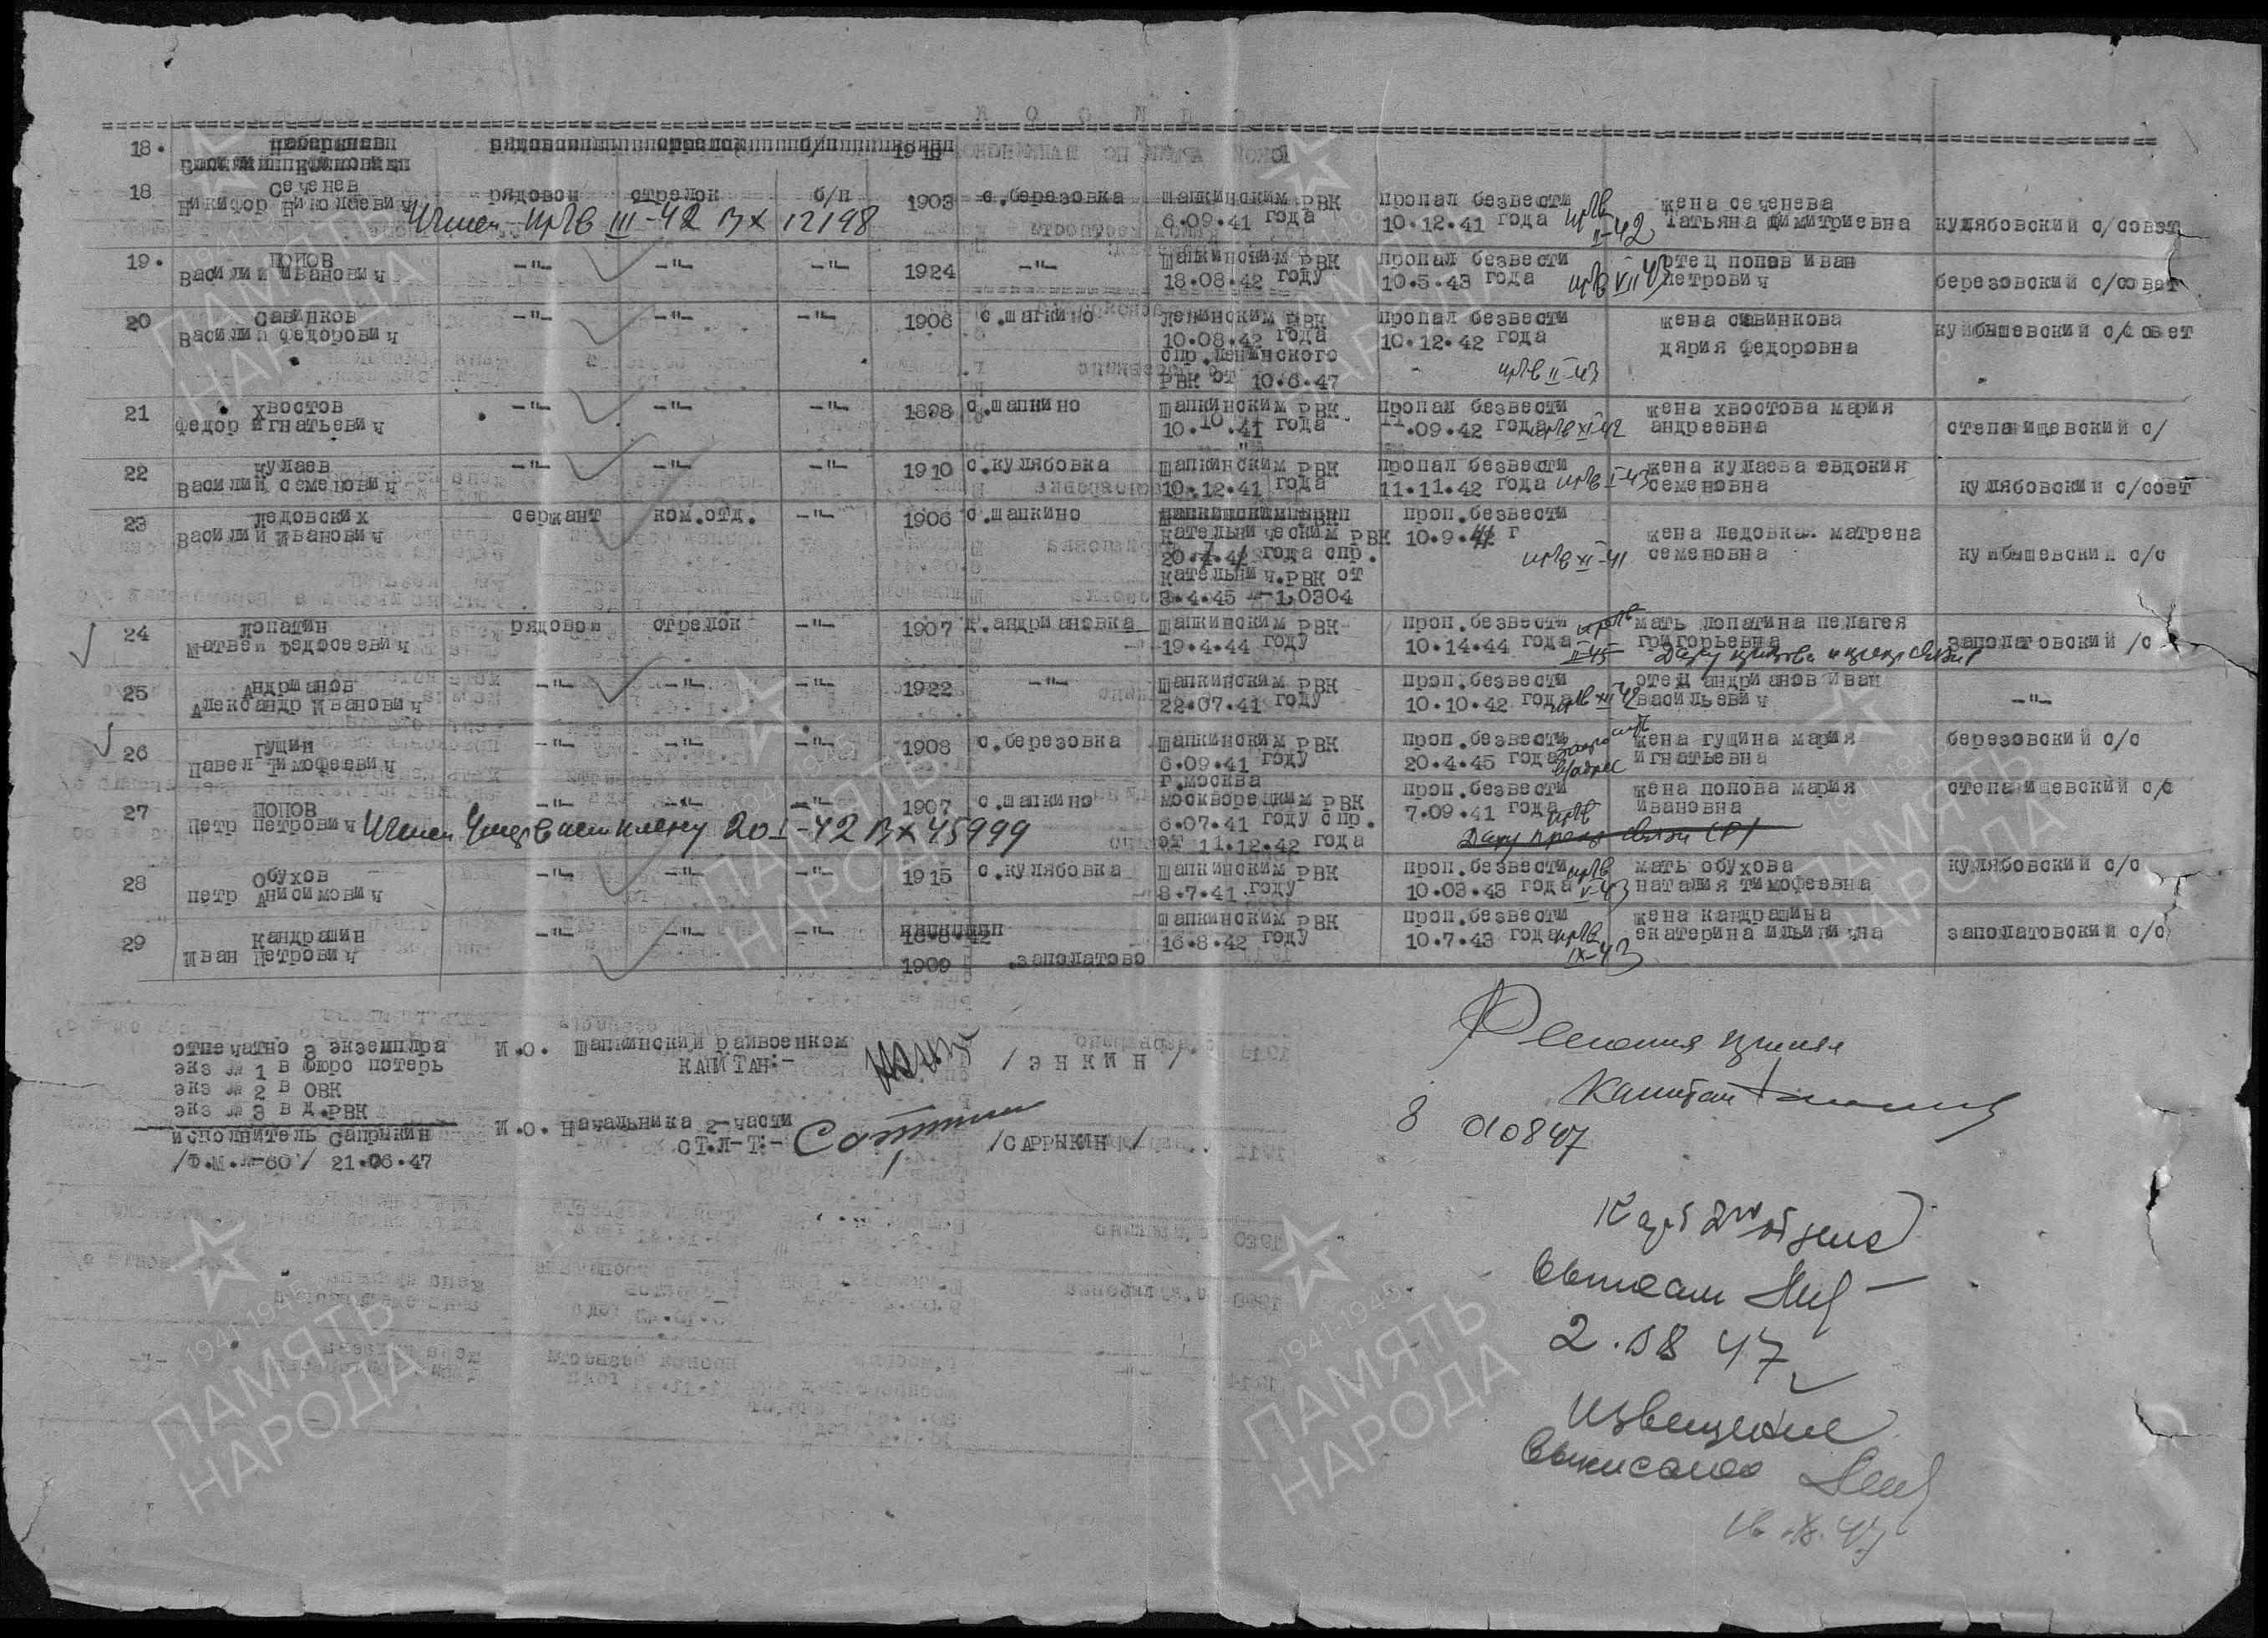 18. рядовои стрелок б/п 1910
18 Сеченев рядовои стрелок б/п 1903 с.березовка шапкинским РВК пропал безвести жена сеченева
Никифор Николаевич 6.09.41 года 10.12.41 года Татьяна Димитриевна кулябовский с/совет
III-42 Вх 12198 II-42
19. попов -"- -"- -"- 1924 -"- Шапкинским РВК пропал безвести отец попов иван
Василии Иванович 18.08.42 году 10.5.43 года VII 43 петрович березовский с/совет
20 Савинков -"- -"- -"- 1906 с.шапкино ленинским РВК пропал безвести жена савинкова куйбышевский с/совет
Василии Федорович 10.08.42 года 10.12.42 года дярия федоровна
спр.ленинского
РВК от 10.6.47 II-43
21 Хвостов -"- -"- -"- 1898 с.шапкино Шапкинским РВК пропал безвести жена хвостова мария
Федор игнатьевич 10.10.41 года 11.09.42 года XI-42 андреевна степанищевский с/
22 кулаев -"- -"- -"- 1910 с.кулябовка Шапкинским РВК пропал безвести жена кулаева евдокия
Василий семенович 10.12.41 года 11.11.42 года I-43 семеновна кулябовский с/соет
23 ледовских сержант ком.отд. -"- 1906 с.шапкино проп.безвести
Василий Иванович кательническим РВК 10.9.41 г жена ледовкая матрена
20.7.41 года спр. XI-41 семеновна куйбышевский с/с
кательнич.РВК от
3.4.45 №-1,0304
24 лопатин рядовои стрелок -"- 1907 д.андриановка Шапкинским РВК проп.безвести мать лопатина пелагея
Матвеи Федосеевич 19.4.44 году 10.14.44 года григорьевна заполатовский /с
II-45
25 Андрианов -"- -"- -"- 1922 -"- Шапкинским РВК проп.безвести отец андрианов иван
Александр Иванович 22.07.41 году 10.10.42 года XII 42 васильевич -"-
26 гущин -"- -"- -"- 1908 с.березовка Шапкинским РВК проп.безвести жена гущина мария березовский с/с
Павел Тимофеевич 6.09.41 году 20.4.45 года игнатьевна
27 попов -"- -"- -"- 1907 с.шапкино г.москва проп.безвести жена попова мария степанищевский с/с
Петр петрович москворецким РВК 7.09.41 года ивановна
6.07.41 году спр.
20 I-42 Вх 45999 от 11.12.42 года
28 Обухов -"- -"- -"- 1915 с.кулябовка Шапкинским РВК проп.безвести мать обухова кулябовский с/с
петр Анисимович 8.7.41 году 10.03.43 года V-43 наталия тимофеевна
29 Кандрашин -"- -"- -"- 16.8.42 шапкинским РВК проп.безвести жена кандрашина
Иван Петрович 16.8.42 году 10.7.43 года екатерина ильинична заполатовский с/с
1909 .заполатово IX-43
отпечатно 3 экземпдра
экз № 1 в бюро потерь
экз № 2 в ОВК
экз № 3 в д.РВК
исполнитель Сапрыкин
/Ф.М.№-60/ 21.06.47
И.О. Шапкинский райвоенком
КАПИТАН:- / Э Н К И Н /
И.О. Начальника 2-части
СТ.Л-Т:- /САРРЫКИН /
Капитан
8 010847
2.08 47
Извещение
выписано
ПАМЯТЬ
НАРОДА
1941-1945